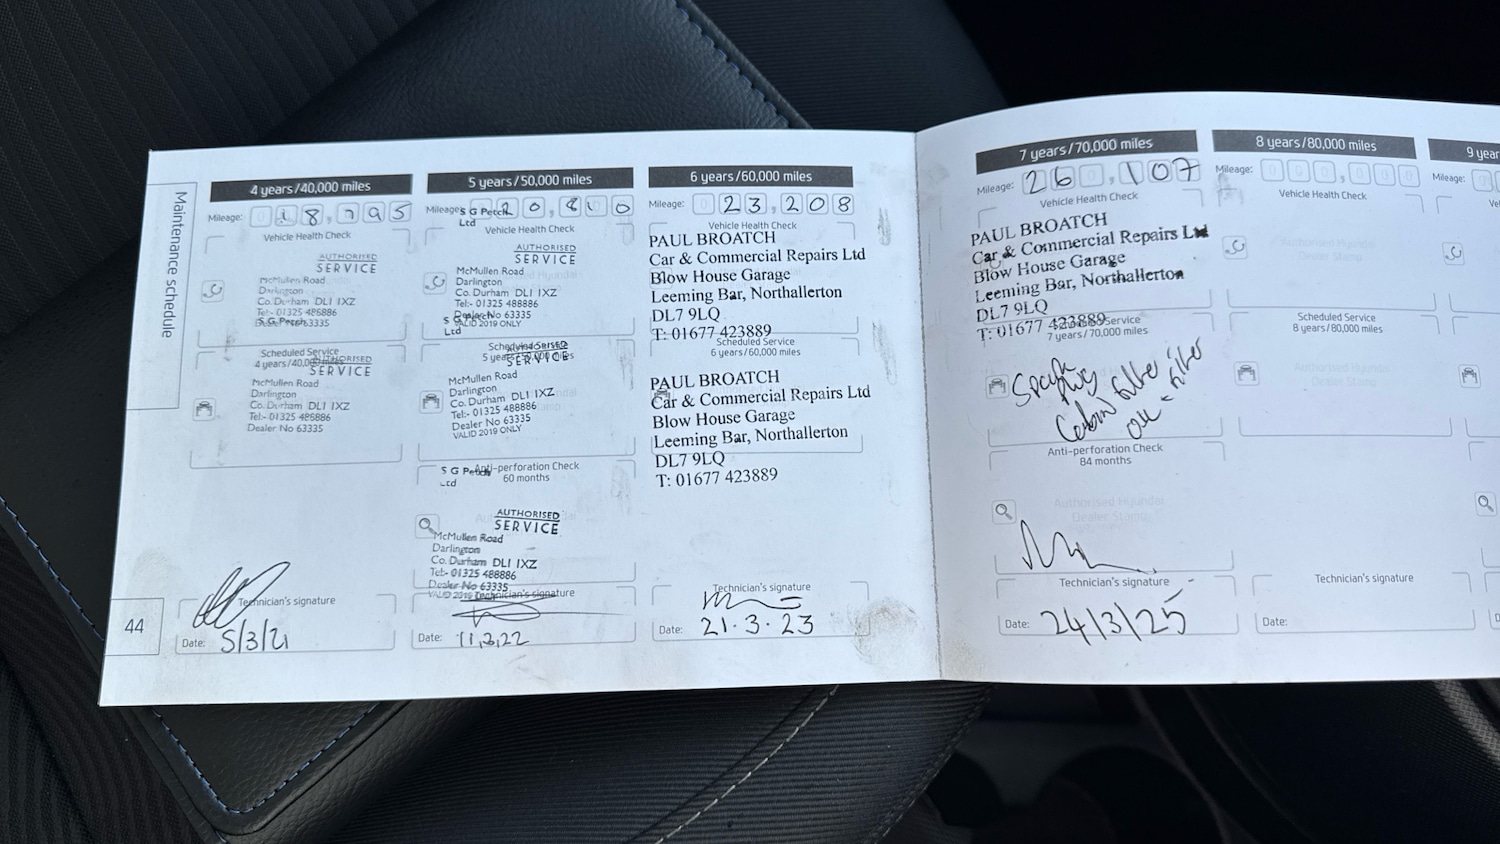 Maintenance schedule
44
4 years/40,000 miles
Mileage: 018,795
Vehicle Health Check
AUTHORISED
SERVICE
McMullen Road
Darlington
Co. Durham DL1 1XZ
Tel:- 01325 486886
S G Petch
Dealer No 63335
Scheduled Service
4 years/40,000 miles
AUTHORISED
SERVICE
McMullen Road
Darlington
Co. Durham DL1 1XZ
Tel:- 01325 486886
Dealer No 63335
Technician's signature
Date: 5/3/21
5 years/50,000 miles
Mileage: 20,810
S G Petch
Ltd
Vehicle Health Check
AUTHORISED
SERVICE
McMullen Road
Darlington
Co. Durham DL1 1XZ
Tel:- 01325 488886
Dealer No 63335
VALID 2019 ONLY
S G Petch
Ltd
Scheduled Service
5 years/50,000 miles
AUTHORISED
SERVICE
McMullen Road
Darlington
Co. Durham DL1 1XZ
Tel:- 01325 488886
Dealer No 63335
VALID 2019 ONLY
S G Petch
Ltd
Anti-perforation Check
60 months
AUTHORISED
SERVICE
McMullen Road
Darlington
Co. Durham DL1 1XZ
Tel:- 01325 488886
Dealer No 63335
VALID 2019
Technician's signature
Date: 11,3,22
6 years/60,000 miles
Mileage: 23,208
Vehicle Health Check
PAUL BROATCH
Car & Commercial Repairs Ltd
Blow House Garage
Leeming Bar, Northallerton
DL7 9LQ
T: 01677 423889
Scheduled Service
6 years/60,000 miles
PAUL BROATCH
Car & Commercial Repairs Ltd
Blow House Garage
Leeming Bar, Northallerton
DL7 9LQ
T: 01677 423889
Technician's signature
Date: 21.3.23
7 years/70,000 miles
Mileage: 26,107
Vehicle Health Check
PAUL BROATCH
Car & Commercial Repairs Ltd
Blow House Garage
Leeming Bar, Northallerton
DL7 9LQ
T: 01677 423889
Scheduled Service
7 years/70,000 miles
Spark
Plugs
filter
filter
Anti-perforation Check
84 months
Authorised Hyundai
Dealer Stamp
Technician's signature
Date: 24/3/25
8 years/80,000 miles
Mileage:
Vehicle Health Check
Authorised Hyundai
Dealer Stamp
Scheduled Service
8 years/80,000 miles
Authorised Hyundai
Dealer Stamp
Technician's signature
Date:
9 year
Mileage: